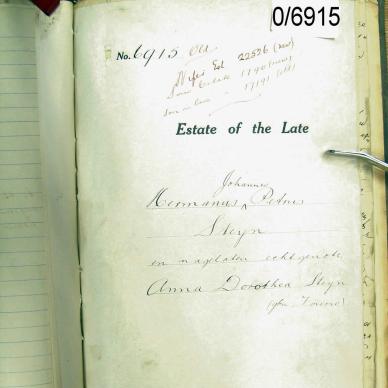 0/6915
No. 6915 Old
Wifes Est 22526 (new)
Sons Estate 1790 (new)
Son in law " 17191 (old)
Estate of the Late
Johannes
Hermanus ^ Petrus
Steyn
en nagelaten echtgenote
Anna Dorothea Steyn
(gbn